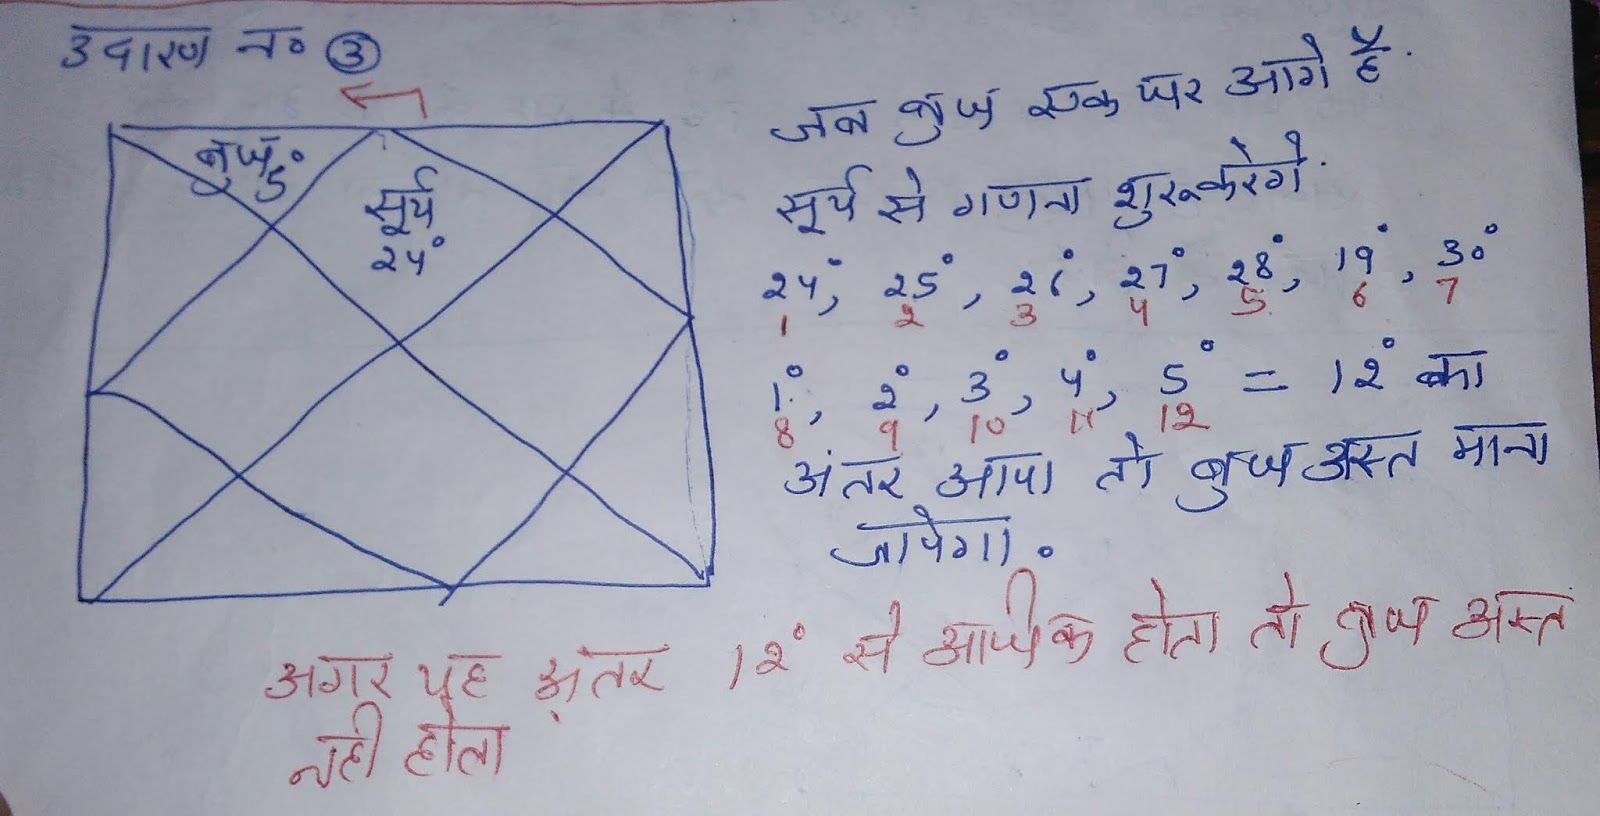 उदारण न० ③
बुध 5°
सूर्य
२४°
जब बुध एक घर आगे है.
सूर्य से गणना शुरू करेगे.
२४°, २5°, २६°, २7°, २8°, 19°, 3०°
1 २ 3 4 5 6 7
1°, २°, 3°, 4°, 5° = 1२° का
8 9 10 11 1२
अंतर आया तो बुध अस्त माना
जायेगा.
अगर यह अंतर 1२° से अधिक होता तो बुध अस्त
नही होता